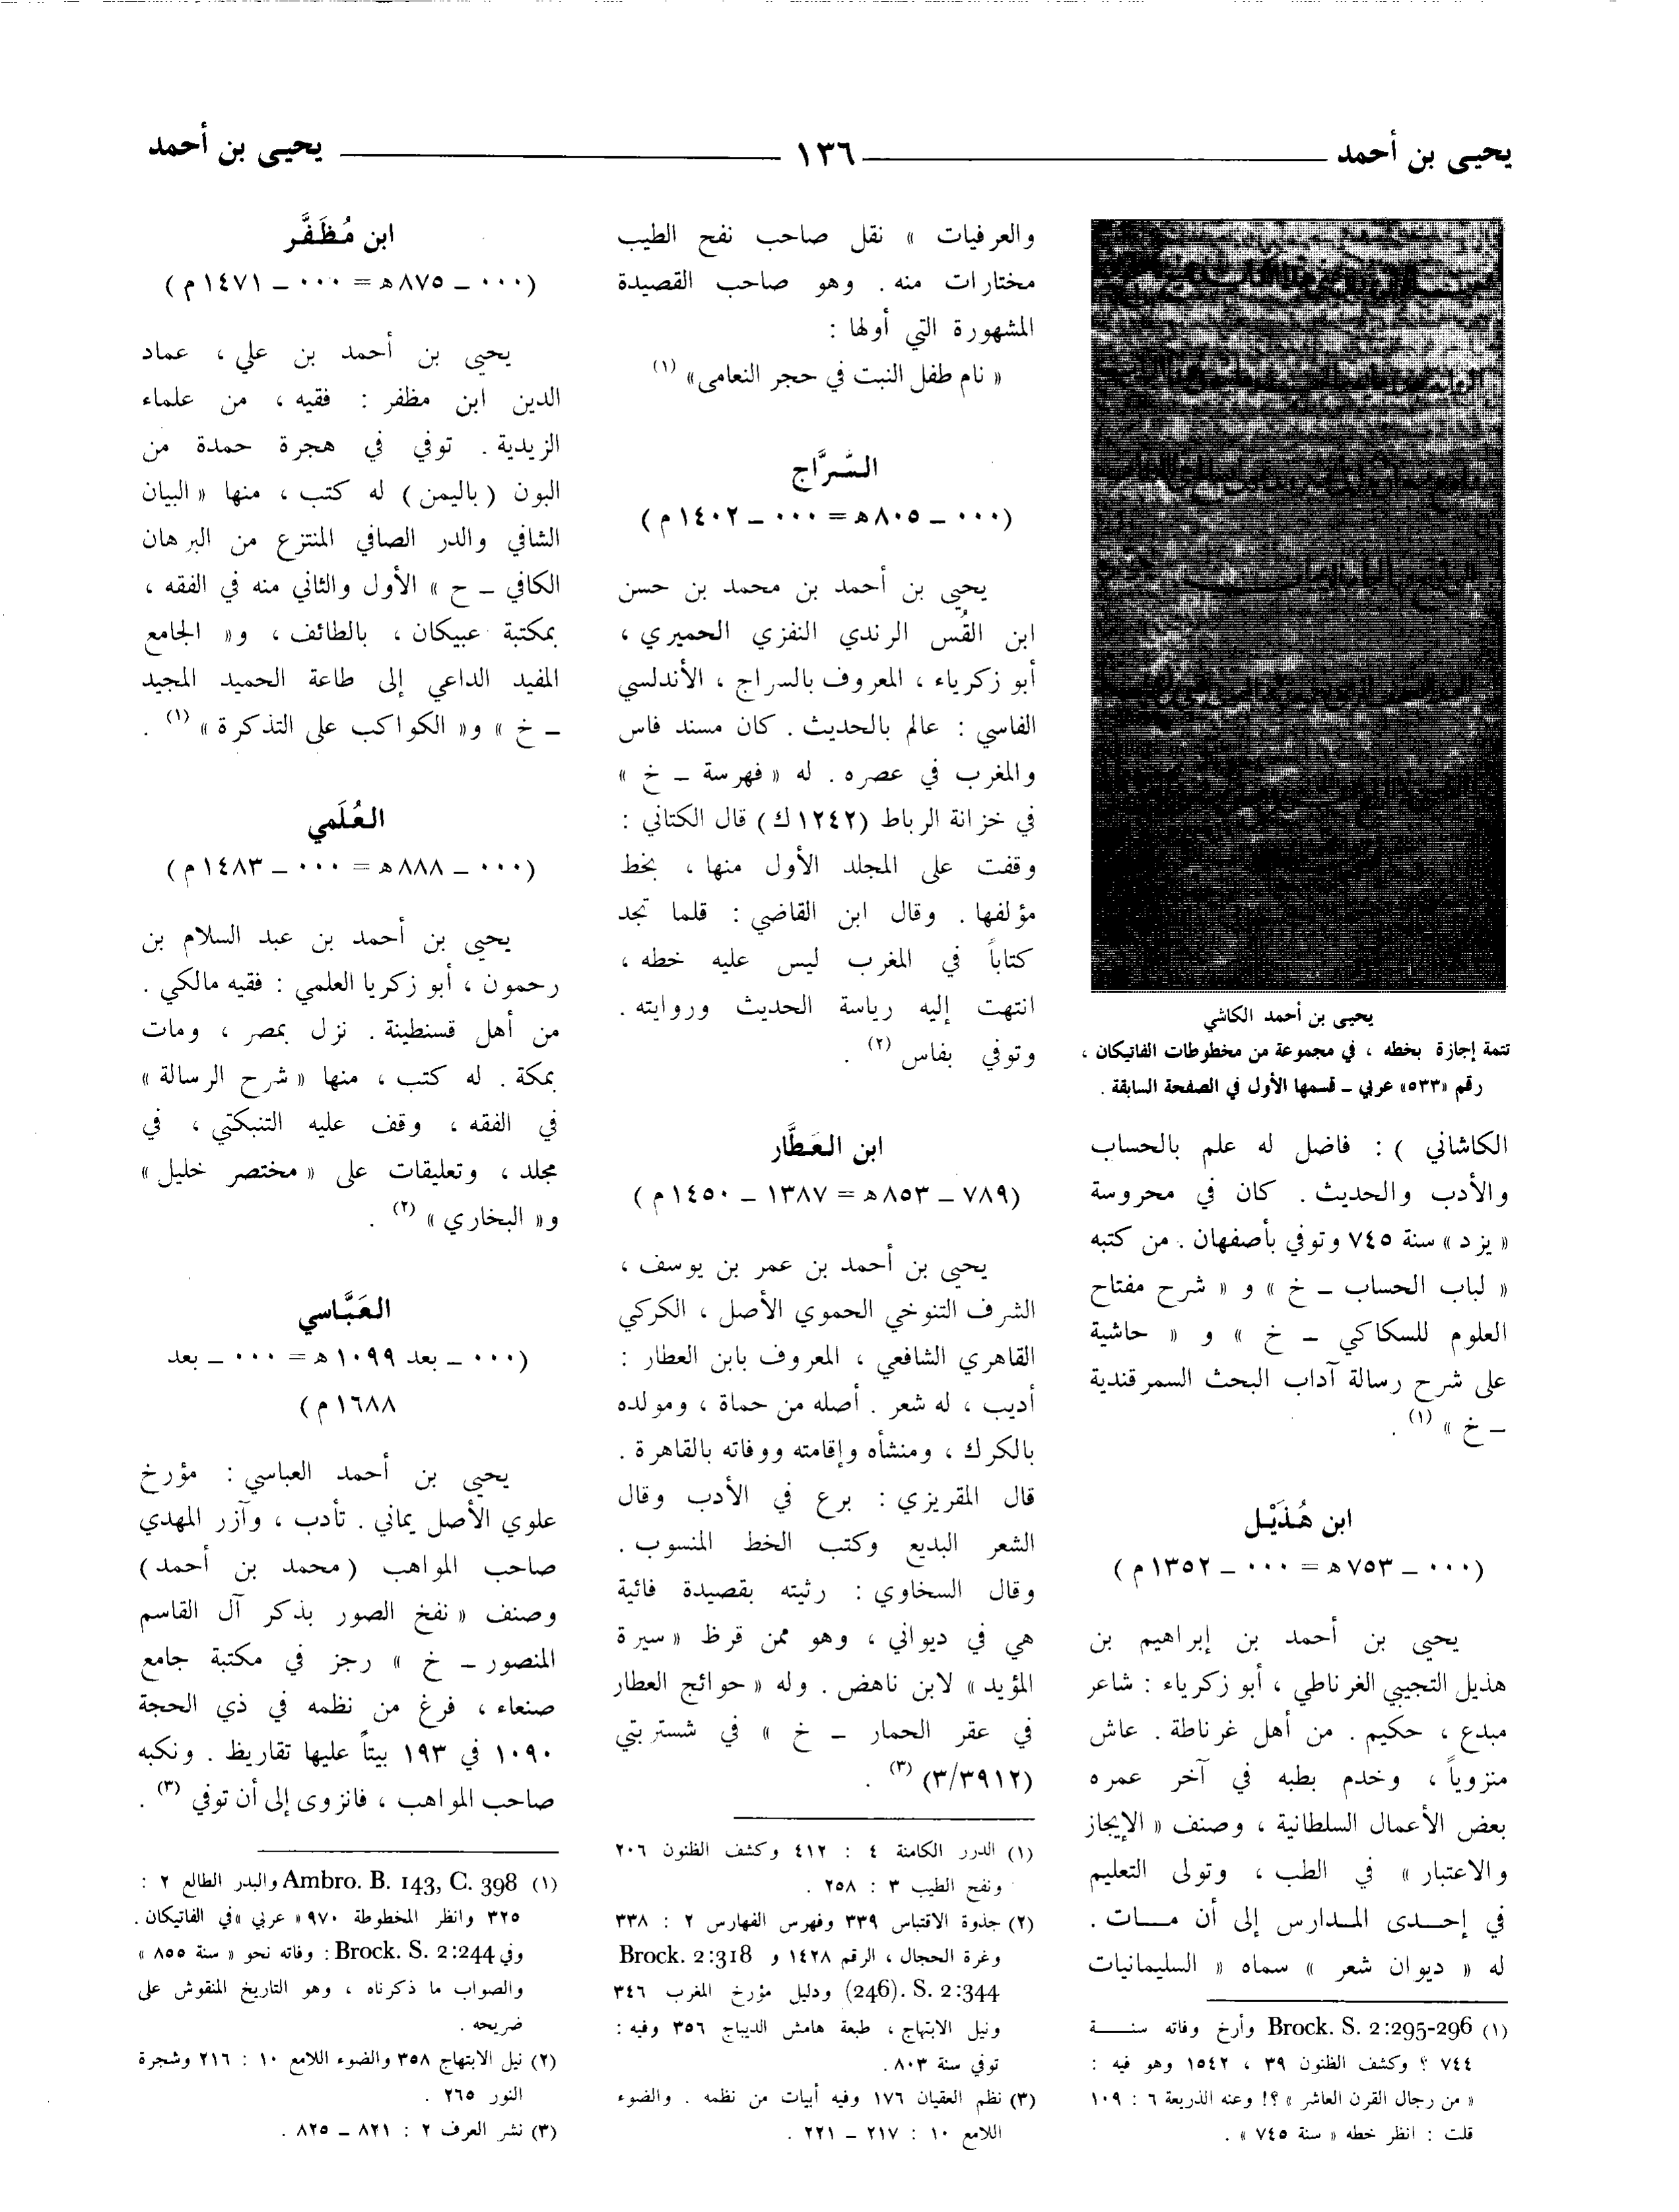 يحيى بن أحمد ١٣٦ يحيى بن أحمد
يحيى بن أحمد الكاشي
تتمة إجازة بخطه ، في مجموعة من مخطوطات الفاتيكان ،
رقم «٥٣٣» عربي – قسمها الأول في الصفحة السابقة .
الكاشاني ) : فاضل له علم بالحساب
والأدب والحديث . كان في محروسة
« يزد » سنة ٧٤٥ وتوفي بأصفهان . من كتبه
« لباب الحساب – خ » و « شرح مفتاح
العلوم للسكاكي – خ » و « حاشية
على شرح رسالة آداب البحث السمرقندية
– خ » (١) .
ابن هُذَيْل
(٠٠٠ – ٧٥٣ ه = ٠٠٠ – ١٣٥٢ م )
يحيى بن أحمد بن إبراهيم بن
هذيل التجيبي الغرناطي ، أبو زكرياء : شاعر
مبدع ، حكيم . من أهل غرناطة . عاش
منزوياً ، وخدم بطبه في آخر عمره
بعض الأعمال السلطانية ، وصنف « الإيجاز
والاعتبار » في الطب ، وتولى التعليم
في إحدى المدارس إلى أن مات .
له « ديوان شعر » سماه « السليمانيات
(١) Brock. S. 2:295-296 وأرخ وفاته سنة
٧٤٤ ؟ وكشف الظنون ٣٩ ، ١٥٤٢ وهو فيه :
« من رجال القرن العاشر » ؟! وعنه الذريعة ٦ : ١٠٩
قلت : انظر خطه « سنة ٧٤٥ » .
والعرفيات » نقل صاحب نفح الطيب
مختارات منه . وهو صاحب القصيدة
المشهورة التي أولها :
« نام طفل النبت في حجر النعامى » (١)
السَّرَّاج
(٠٠٠ – ٨٠٥ ه = ٠٠٠ – ١٤٠٢ م )
يحيى بن أحمد بن محمد بن حسن
ابن القُس الرندي النفزي الحميري ،
أبو زكرياء ، المعروف بالسراج ، الأندلسي
الفاسي : عالم بالحديث . كان مسند فاس
والمغرب في عصره . له « فهرسة – خ »
في خزانة الرباط (١٢٤٢ ك ) قال الكتاني :
وقفت على المجلد الأول منها ، بخط
مؤلفها . وقال ابن القاضي : قلما تجد
كتاباً في المغرب ليس عليه خطه ،
انتهت إليه رياسة الحديث وروايته .
وتوفي بفاس (٢) .
ابن العَطَّار
(٧٨٩ – ٨٥٣ ه = ١٣٨٧ – ١٤٥٠ م )
يحيى بن أحمد بن عمر بن يوسف ،
الشرف التنوخي الحموي الأصل ، الكركي
القاهري الشافعي ، المعروف بابن العطار :
أديب ، له شعر . أصله من حماة ، ومولده
بالكرك ، ومنشأه وإقامته ووفاته بالقاهرة .
قال المقريزي : برع في الأدب وقال
الشعر البديع وكتب الخط المنسوب .
وقال السخاوي : رثيته بقصيدة فائية
هي في ديواني ، وهو ممن قرظ « سيرة
المؤيد » لابن ناهض . وله « حوائج العطار
في عقر الحمار – خ » في شستربتي
(٣/٣٩١٢) (٣) .
(١) الدرر الكامنة ٤ : ٤١٢ وكشف الظنون ٢٠٦
ونفح الطيب ٣ : ٢٥٨ .
(٢) جذوة الاقتباس ٣٣٩ وفهرس الفهارس ٢ : ٣٣٨
وغرة الحجال ، الرقم ١٤٢٨ و Brock. 2:318
(246). S. 2:344 ودليل مؤرخ المغرب ٣٤٦
ونيل الابتهاج ، طبعة هامش الديباج ٣٥٦ وفيه :
توفي سنة ٨٠٣ .
(٣) نظم العقيان ١٧٦ وفيه أبيات من نظمه . والضوء
اللامع ١٠ : ٢١٧ – ٢٢١ .
ابن مُظَفَّر
(٠٠٠ – ٨٧٥ ه = ٠٠٠ – ١٤٧١ م )
يحيى بن أحمد بن علي ، عماد
الدين ابن مظفر : فقيه ، من علماء
الزيدية . توفي في هجرة حمدة من
البون ( باليمن ) له كتب ، منها « البيان
الشافي والدر الصافي المنتزع من البرهان
الكافي – ح » الأول والثاني منه في الفقه ،
بمكتبة عبيكان ، بالطائف ، و« الجامع
المفيد الداعي إلى طاعة الحميد المجيد
– خ » و« الكواكب على التذكرة » (١) .
العُلَمي
(٠٠٠ – ٨٨٨ ه = ٠٠٠ – ١٤٨٣ م )
يحيى بن أحمد بن عبد السلام بن
رحمون ، أبو زكريا العلمي : فقيه مالكي .
من أهل قسنطينة . نزل بمصر ، ومات
بمكة . له كتب ، منها « شرح الرسالة »
في الفقه ، وقف عليه التنبكتي ، في
مجلد ، وتعليقات على « مختصر خليل »
و« البخاري » (٢) .
العَبَّاسي
(٠٠٠ – بعد ١٠٩٩ ه = ٠٠٠ – بعد
١٦٨٨ م )
يحيى بن أحمد العباسي : مؤرخ
علوي الأصل يماني . تأدب ، وآزر المهدي
صاحب المواهب ( محمد بن أحمد )
وصنف « نفخ الصور بذكر آل القاسم
المنصور – خ » رجز في مكتبة جامع
صنعاء ، فرغ من نظمه في ذي الحجة
١٠٩٠ في ١٩٣ بيتاً عليها تقاريظ . ونكبه
صاحب المواهب ، فانزوى إلى أن توفي (٣) .
(١) Ambro. B. 143, C. 398 والبدر الطالع ٢ :
٣٢٥ وانظر المخطوطة ٩٧٠ « عربي » في الفاتيكان .
وفي Brock. S. 2:244 : وفاته نحو « سنة ٨٥٥ »
والصواب ما ذكرناه ، وهو التاريخ المنقوش على
ضريحه .
(٢) نيل الابتهاج ٣٥٨ والضوء اللامع ١٠ : ٢١٦ وشجرة
النور ٢٦٥ .
(٣) نشر العرف ٢ : ٨٢١ – ٨٢٥ .